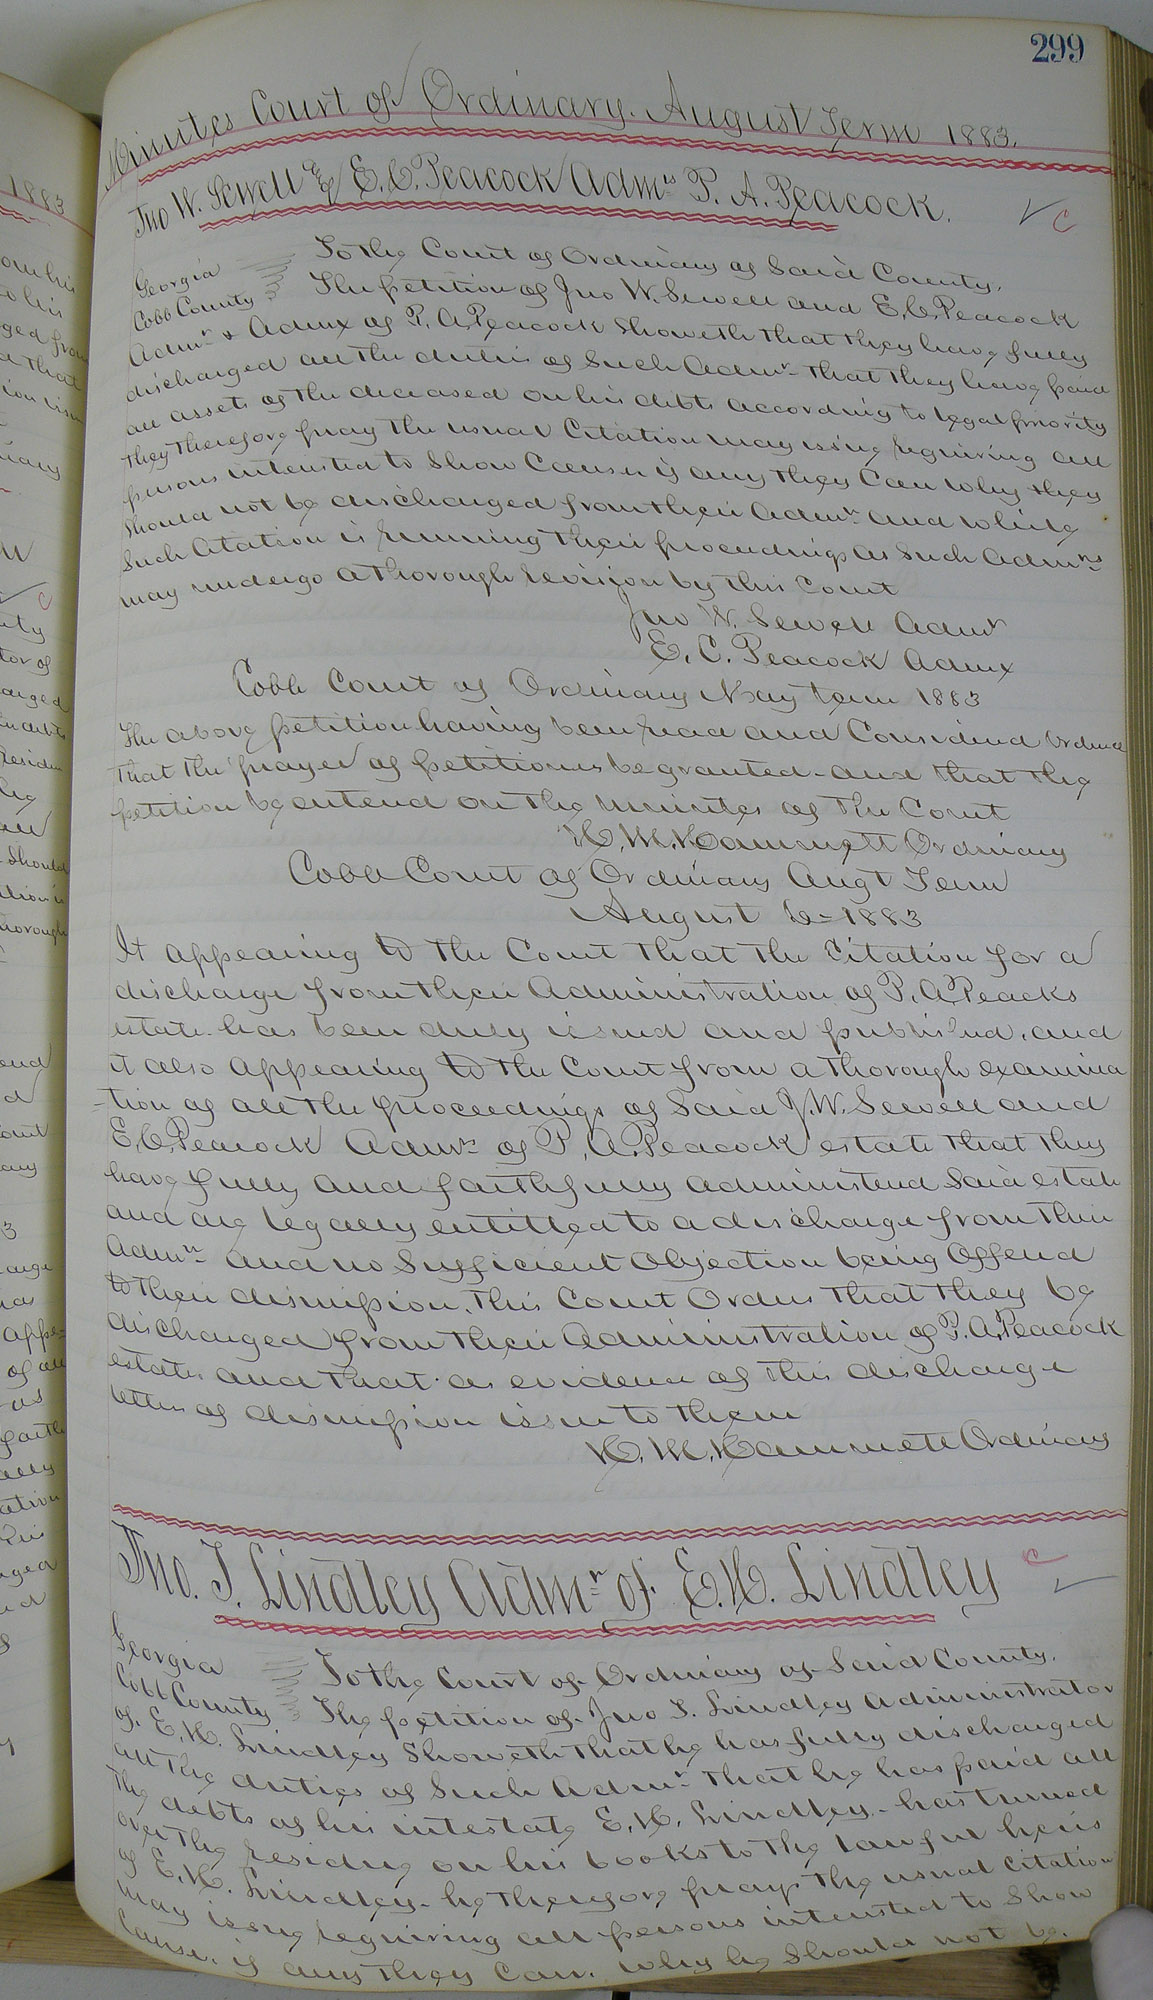 299
Minutes Court of Ordinary. August Term 1883.
Jno W. Sewell & E. C. Peacock Admrs P. A. Peacock.
C
To the Court of Ordinary of Said County.
Georgia
Cobb County
The petition of Jno W. Sewell and E. C. Peacock
Admr & Admx of P. A. Peacock Showeth that they have fully
discharged all the duties of Such Admrs that they have paid
all assets of the deceased on his debts according to legal priority
they therefore pray the usual Citation may issue requiring all
persons interested to Show Cause if any they Can why they
Should not be discharged from their Admr and while
Such Citation is running their proceedings as Such Admrs
may undergo a thorough revision by this Court
Jno W. Sewell Admr
E. C. Peacock Admx
Cobb Court of Ordinary May term 1883
The above petition having been read and Considered Ordered
that the prayer of petitioners be granted and that the
petition be entered on the minutes of the Court
H. M. Hammett Ordinary
Cobb Court of Ordinary Augt Term
August 6 = 1883
It appearing to the Court that the Citation for a
discharge from their Administration of P. A. Peacks
estate has been duly issued and published, and
it also appearing to the Court from a thorough examina
=tion of all the proceedings of Said J. W. Sewell and
E. C. Peacock Admrs of P. A. Peacock estate that they
have fully and faithfully administered Said estate
and are legally entitled to a discharge from their
Admn and no Sufficient Objection being Offered
to their dismission, this Court Orders that they be
discharged from their Administration of P. A. Peacock
estate and that as evidence of this discharge
letters of dismission issue to them
H. M. Hammett Ordinary
Jno. T. Lindley Admr of E. H. Lindley
C
Georgia
Cobb County
To the Court of Ordinary of Said County.
The petition of Jno T. Lindley Administrator
of E. H. Lindley Showeth that he has fully discharged
all the duties of Such Admr that he has paid all
the debts of his intestate E. H. Lindley - has turned
over the residue on his books to the lawful heirs
of E. H. Lindley - he therefore prays the usual citation
may issue requiring all persons interested to Show
Cause, if any they Can, why he Should not be